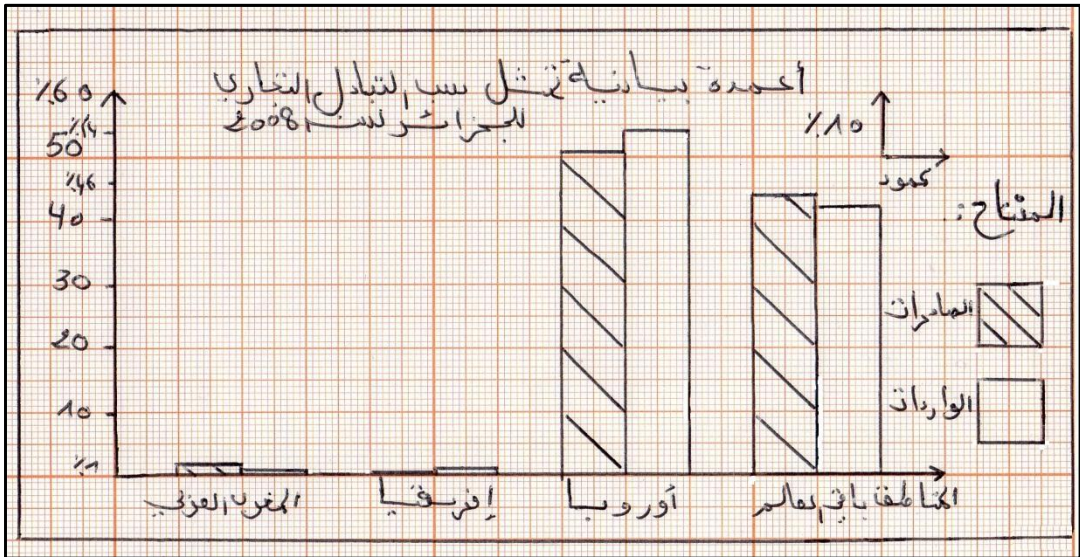 أعمدة بيانية تمثل نسب التبادل التجاري
للجزائر لسنة 2008
%60
%54
50
%46
40
30
20
10
%1
%10
عمود
المفتاح:
الصادرات
الواردات
المغرب العربي
إفريقيا
أوروبا
المناطق باقي العالم